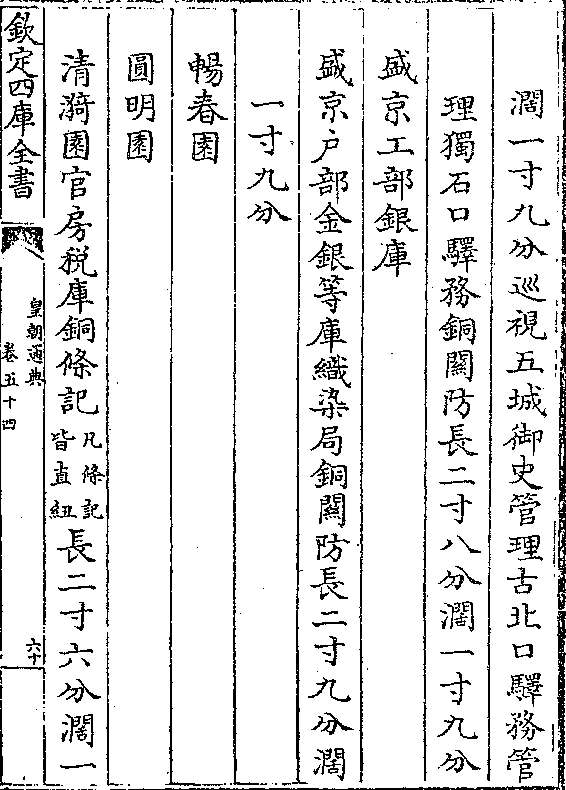 濶一寸九分巡視五城御史管理古北口驛務管
理獨石口驛務銅關防長二寸八分濶一寸九分
盛京工部銀庫
盛京户部金銀等庫織染局銅關防長二寸九分濶
一寸九分
暢春園
圓明園
清漪園官房税庫銅條記凡條記皆直紐長二寸六分濶一
欽定四庫全書
皇朝通典
卷五十四
六十